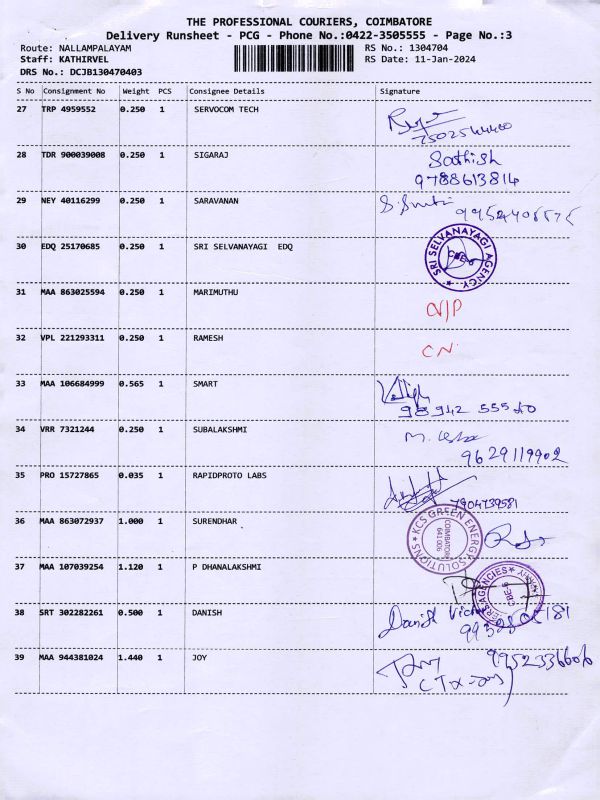 THE PROFESSIONAL COURIERS, COIMBATORE
Delivery Runsheet - PCG - Phone No.:0422-3505555 - Page No.:3
Route: NALLAMPALAYAM RS No.: 1304704
Staff: KATHIRVEL RS Date: 11-Jan-2024
DRS No.: DCJB130470403
S No Consignment No Weight PCS Consignee Details Signature
27 TRP 4959552 0.250 1 SERVOCOM TECH
28 TDR 900039008 0.250 1 SIGARAJ Sathish
9788613814
29 NEY 40116299 0.250 1 SARAVANAN
30 EDQ 25170685 0.250 1 SRI SELVANAYAGI EDQ
SRI SELVANAYAGI AGENCY
31 MAA 863025594 0.250 1 MARIMUTHU
N/P
32 VPL 221293311 0.250 1 RAMESH
CN
33 MAA 106684999 0.565 1 SMART
34 VRR 7321244 0.250 1 SUBALAKSHMI
9629119902
35 PRO 15727865 0.035 1 RAPIDPROTO LABS
7904739581
36 MAA 863072937 1.000 1 SURENDHAR
KCS GREEN ENERGY SOLUTIONS
COIMBATORE
641 006
37 MAA 107039254 1.120 1 P DHANALAKSHMI
AGENCIES
38 SRT 302282261 0.500 1 DANISH Danish
39 MAA 944381024 1.440 1 JOY 9952336606